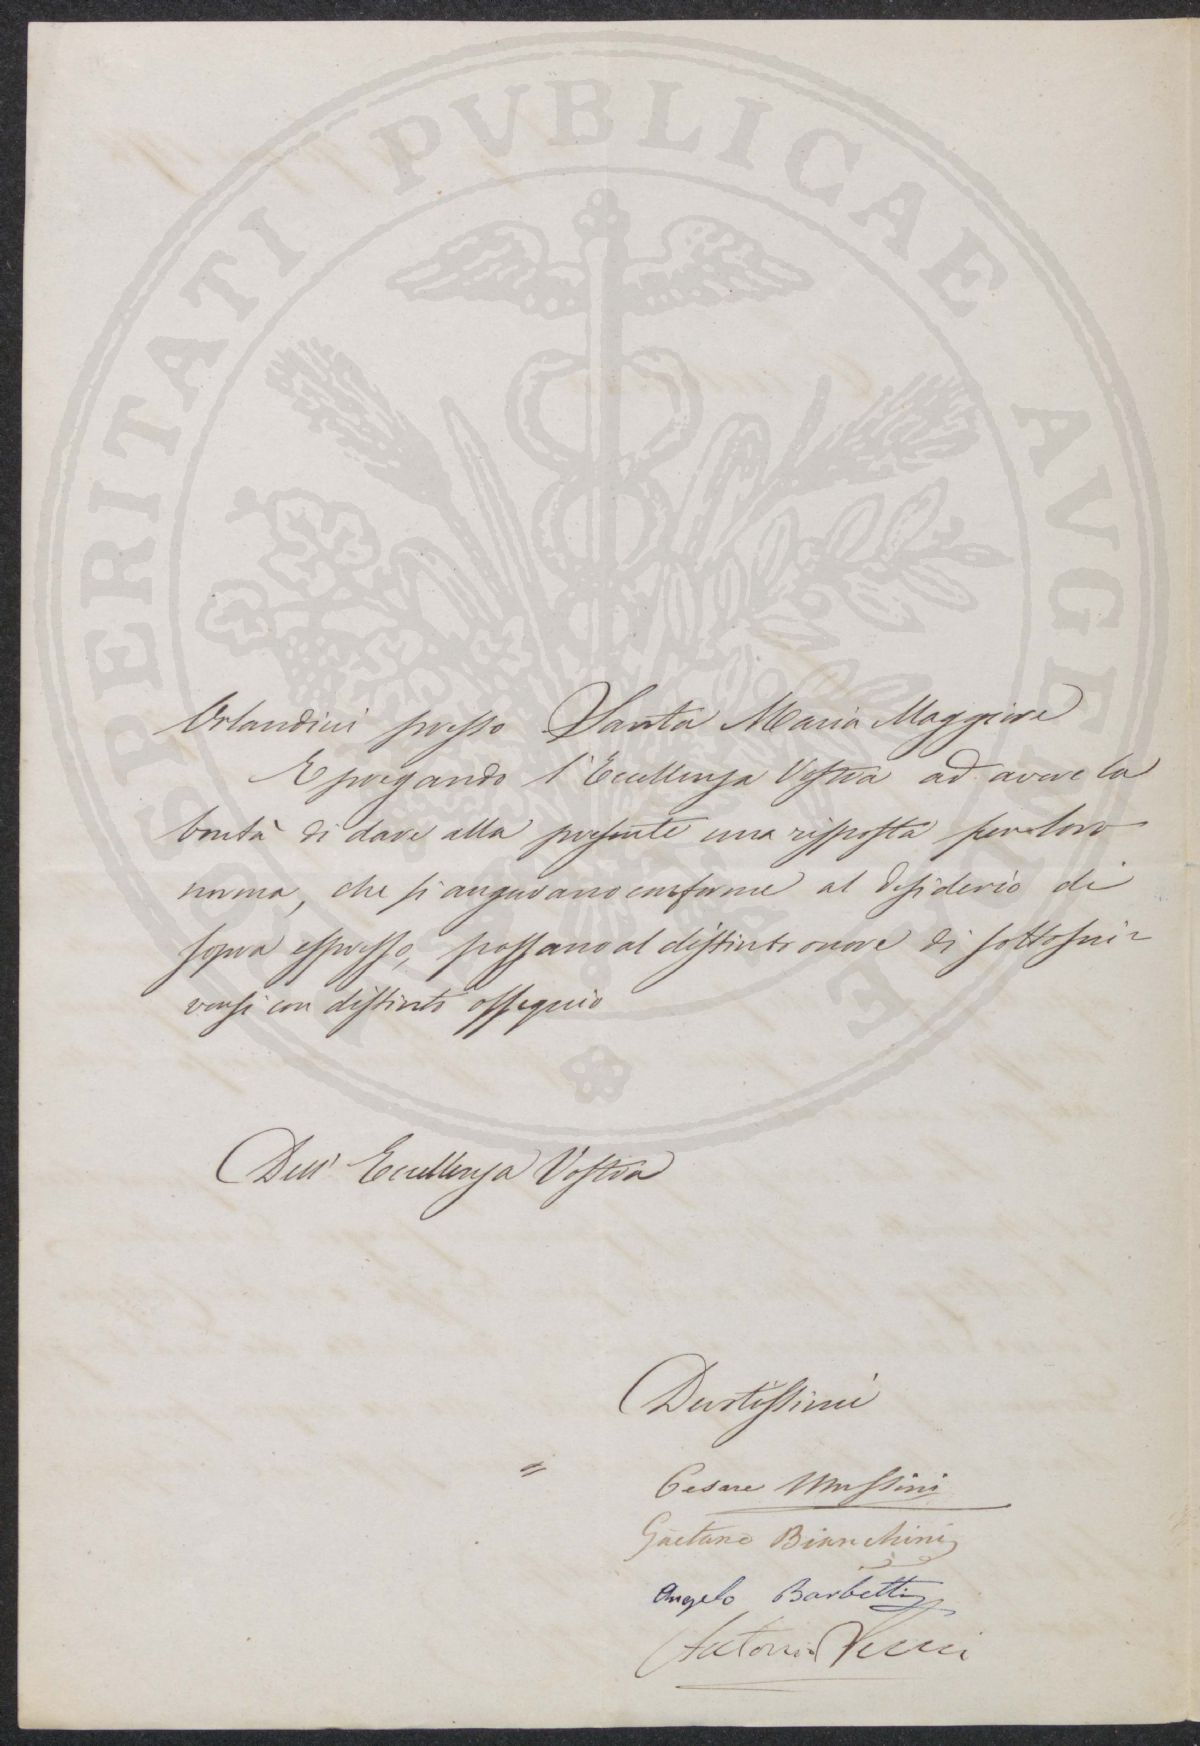 Orlandini presso Santa Maria Maggiore
E pregando l'Eccellenza Vostra ad avere la
bontà di dare alla presente una risposta per loro
norma, che si augurano conforme al desiderio di
sopra espresso, passano al distinto onore di sottoscri-
versi con distinto ossequio
Dell' Eccellenza Vostra
Devotissimi
Cesare Mussini
Gaetano Bianchini
Angelo Barbetti
Antonio
PROSPERITATI PVBLICAE AVGENDAE